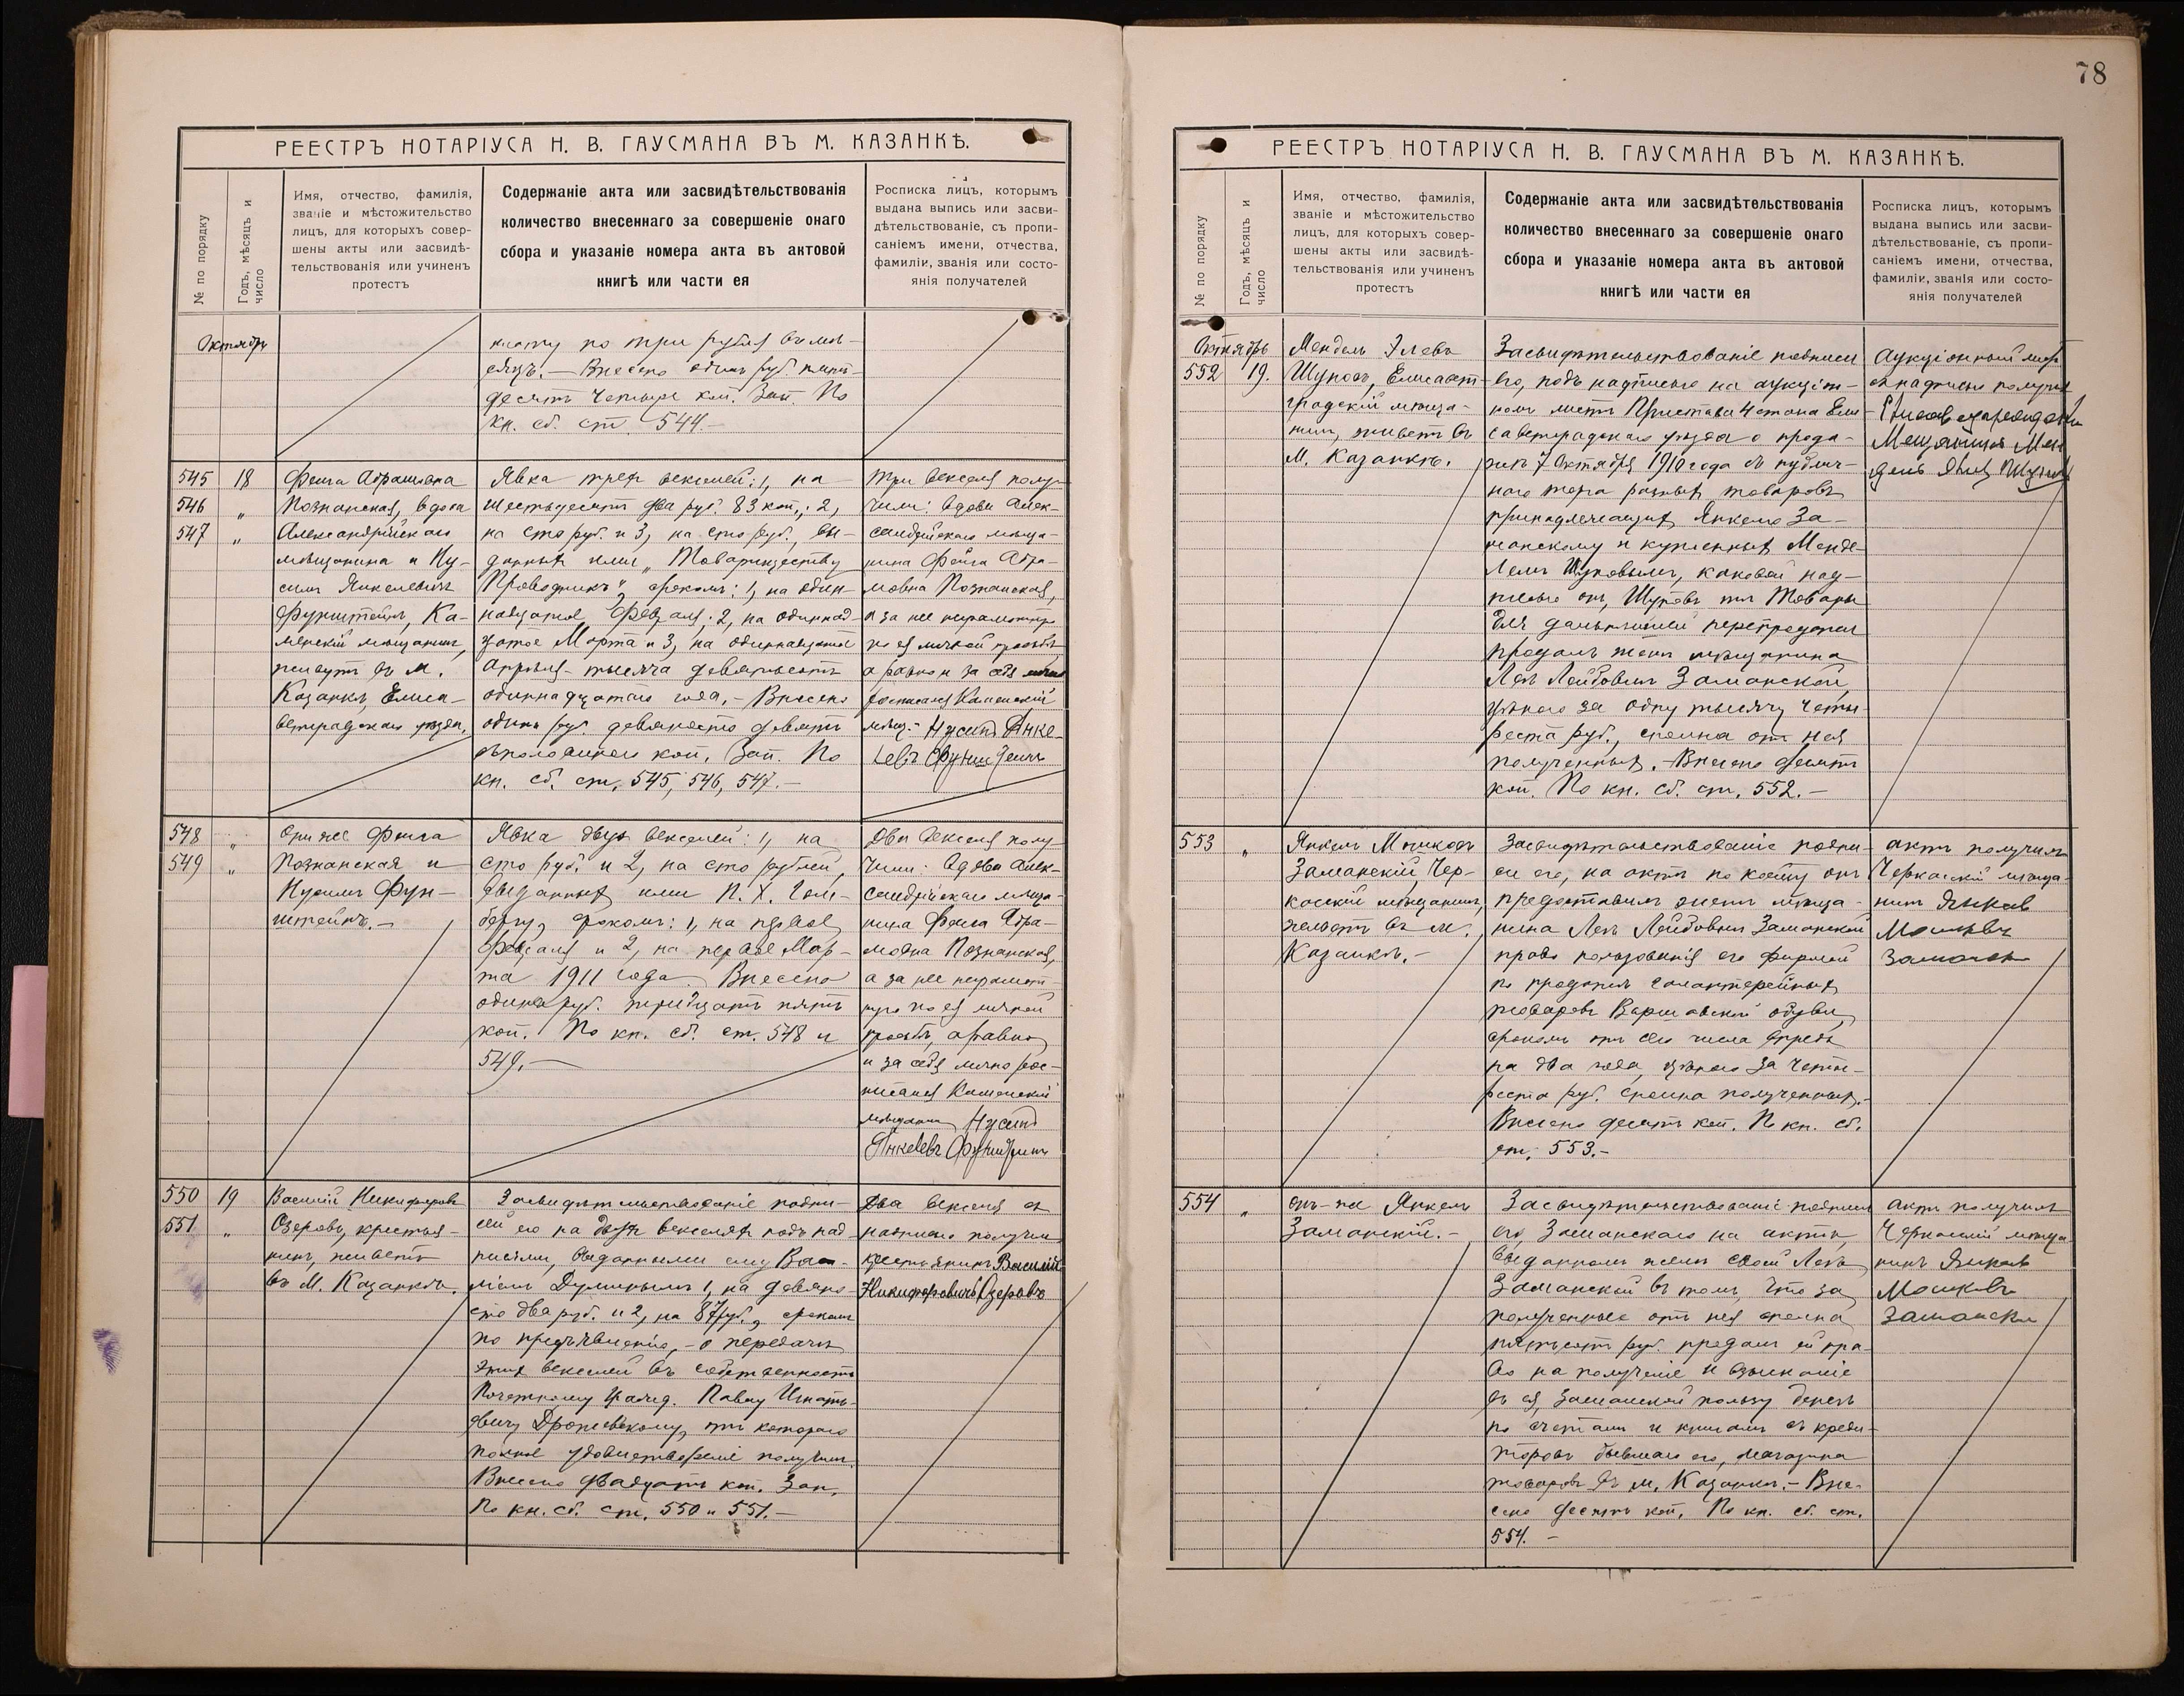 78
РЕЕСТРЪ НОТАРІУСА Н. В. ГАУСМАНА ВЪ М. КАЗАНКѢ.
№ по порядку
Годъ, мѣсяцъ и
число
Имя, отчество, фамилія,
званіе и мѣстожительство
лицъ, для которыхъ совер-
шены акты или засвидѣ-
тельствованія или учиненъ
протестъ
Содержаніе акта или засвидѣтельствованія
количество внесеннаго за совершеніе онаго
сбора и указаніе номера акта въ актовой
книгѣ или части ея
Росписка лицъ, которымъ
выдана выпись или засви-
дѣтельствованіе, съ пропи-
саніемъ имени, отчества,
фамиліи, званія или состо-
янія получателей
Октябрь
плату по три рубля въ мѣ-
сяцъ. — Внесено одинъ руб. пять-
десятъ четыре коп. Зап. По
кн. сб. ст. 544. —
545 18
546 "
547 "
Фейга Абрамовна
Познанская, вдова
Александрійскаго
мѣщанина и Ну-
симъ Янкелевичъ
Фунштейнъ, Ка-
менскій мѣщанинъ,
живутъ въ м.
Казанкѣ, Елиса-
ветградскаго уѣзда.
Явка трехъ векселей: 1, на
шестьдесятъ два руб. 83 коп.; 2,
на сто руб. и 3, на сто руб., вы-
данныхъ ими „Товариществу
Проводникъ", срокомъ: 1, на один-
надцатое Февраля; 2, на одиннад-
цатое Марта и 3, на одиннадцатое
Апрѣля тысяча девятьсотъ
одиннадцатаго года. — Внесено
одинъ руб. девяносто девять
съ половиною коп. Зап. По
кн. сб. ст. 545, 546, 547. —
Три векселя полу-
чили: вдова Алек-
сандрійскаго мѣща-
нина Фейга Абра-
мовна Познанская,
а за нее неграмотную
по ея личной просьбѣ,
а равно и за себя лично
росписался Каменскій
мѣщ. Нусимъ Янке-
левъ Фунштейнъ
548 "
549 "
Они же Фейга
Познанская и
Нусимъ Фун-
штейнъ. —
Явка двухъ векселей: 1, на
сто руб. и 2, на сто рублей,
выданныхъ ими П. Х. Гольд-
бергу, срокомъ: 1, на первое
Февраля и 2, на первое Мар-
та 1911 года. Внесено
одинъ руб. тридцать пять
коп. По кн. сб. ст. 548 и
549. —
Два векселя полу-
чили: вдова Алек-
сандрійскаго мѣща-
нина Фейга Абра-
мовна Познанская,
а за нее неграмот-
ную по ея личной
просьбѣ, а равно
и за себя лично рос-
писался Каменскій
мѣщанинъ Нусимъ
Янкелевъ Фунштейнъ
550 19
551 "
Василій Никифоровъ
Озеровъ, крестья-
нинъ, живетъ
въ м. Казанкѣ.
Засвидѣтельствованіе подпи-
сей его на двухъ векселяхъ подъ над-
писями, выданными ему
1, на девяно-
сто два руб. и 2, на 87 руб., срокомъ
по предъявленію, — о передачѣ
этихъ векселей въ собственность
Почетному гражд. Павлу Игнать-
евичу отъ котораго
полное удовлетвореніе получилъ.
Внесено двадцать коп. Зап.
По кн. сб. ст. 550 и 551. —
Два векселя съ
надписью получилъ
крестьянинъ Василій
Никифоровичъ Озеровъ
РЕЕСТРЪ НОТАРІУСА Н. В. ГАУСМАНА ВЪ М. КАЗАНКѢ.
№ по порядку
Годъ, мѣсяцъ и
число
Имя, отчество, фамилія,
званіе и мѣстожительство
лицъ, для которыхъ совер-
шены акты или засвидѣ-
тельствованія или учиненъ
протестъ
Содержаніе акта или засвидѣтельствованія
количество внесеннаго за совершеніе онаго
сбора и указаніе номера акта въ актовой
книгѣ или части ея
Росписка лицъ, которымъ
выдана выпись или засви-
дѣтельствованіе, съ пропи-
саніемъ имени, отчества,
фамиліи, званія или состо-
янія получателей
Октябрь
552 19.
Мендель Элевъ
Шуповъ, Елисавет-
градскій мѣща-
нинъ, живетъ въ
м. Казанкѣ.
Засвидѣтельствованіе подписи
его, подъ надписью на аукціон-
номъ листѣ Пристава 4 стана Ели-
саветградскаго уѣзда о прода-
жѣ 7 Октября 1910 года съ публич-
наго торга разныхъ товаровъ
принадлежащихъ Янкелю За-
манскому и купленныхъ Менде-
лемъ Шуповымъ, каковой над-
писью онъ, Шуповъ эти товары
для дальнѣйшей перепродажи
продалъ женѣ мѣщанина
Леѣ Лейбовнѣ Заманской,
цѣною за одну тысячу четы-
реста руб., сполна отъ нея
полученныхъ. — Внесено десять
коп. По кн. сб. ст. 552. —
Аукціонный листъ
съ надписью получилъ
Елисаветградскій
Мещанинъ Мен
дель
553 "
Янкель Мошковъ
Заманскій, Чер-
касскій мѣщанинъ,
живетъ въ м.
Казанкѣ. —
Засвидѣтельствованіе подпи-
си его, на актѣ по коему онъ
предоставилъ женѣ мѣща-
нина Леѣ Лейбовнѣ Заманской
право пользованія его фирмой
по продажѣ галантерейныхъ
товаровъ Варшавской обуви,
срокомъ отъ сего числа впредь
на два года, цѣною за четы-
реста руб. сполна полученныхъ. —
Внесено десять коп. По кн. сб.
ст. 553. —
Актъ получилъ
Черкасскій мѣща-
нинъ Янкель
Мошковъ
Замански
554 "
Онъ-же Янкель
Заманскій. —
Засвидѣтельствованіе подписи
его, Заманскаго на актѣ,
выданномъ женѣ своей Леѣ
Заманской въ томъ, что за
полученные отъ нея сполна
пятьсотъ руб. продалъ ей пра-
во на полученіе и взысканіе
въ ея, Заманской пользу денегъ
по счетамъ и книгамъ съ креди-
торовъ бывшаго его, магазина
товаровъ въ м. Казанкѣ. — Вне-
сено десять коп. По кн. сб. ст.
554. —
Актъ получилъ
Черкасскій мѣща-
нинъ Янкель
Мошковъ
Замански